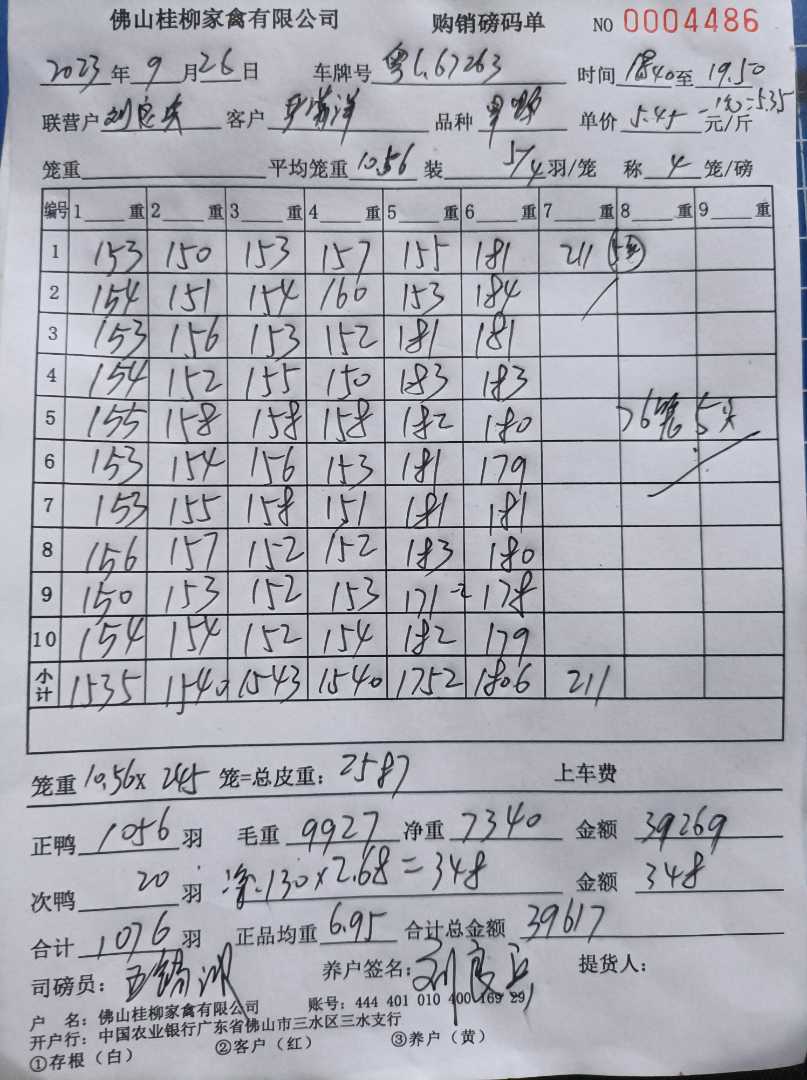 佛山桂柳家禽有限公司 购销磅码单 NO 0004486
2023年9月26日 车牌号 粤L67263 时间 18.40至 19.50
联营户 客户 品种 单价 5.45 元/斤 =5.35
笼重 平均笼重 10.56 装 5/4 羽/笼 称 4 笼/磅
编号 1 重 2 重 3 重 4 重 5 重 6 重 7 重 8 重 9 重
1 153 150 153 157 155 181 211
2 154 151 154 160 153 184
3 153 156 153 152 181 181
4 154 152 155 150 183 183
5 155 158 158 158 182 180
6 153 154 156 153 181 179
7 153 155 158 151 181 181
8 156 157 152 152 183 180
9 150 153 152 153 171 -2 178
10 154 154 152 154 182 179
小计 1535 1540 1543 1540 1752 1806 211
笼重 10.56× 245 笼=总皮重: 2587 上车费
正鸭 1056 羽 毛重 9927 净重 7340 金额 39269
次鸭 20 羽 净.130×2.68=348 金额 348
合计 1076 羽 正品均重 6.95 合计总金额 39617
司磅员: 养户签名: 提货人:
户 名: 佛山桂柳家禽有限公司 账号: 444 401 010 400 169 29
开户行: 中国农业银行广东省佛山市三水区三水支行
①存根（白） ②客户（红） ③养户（黄）